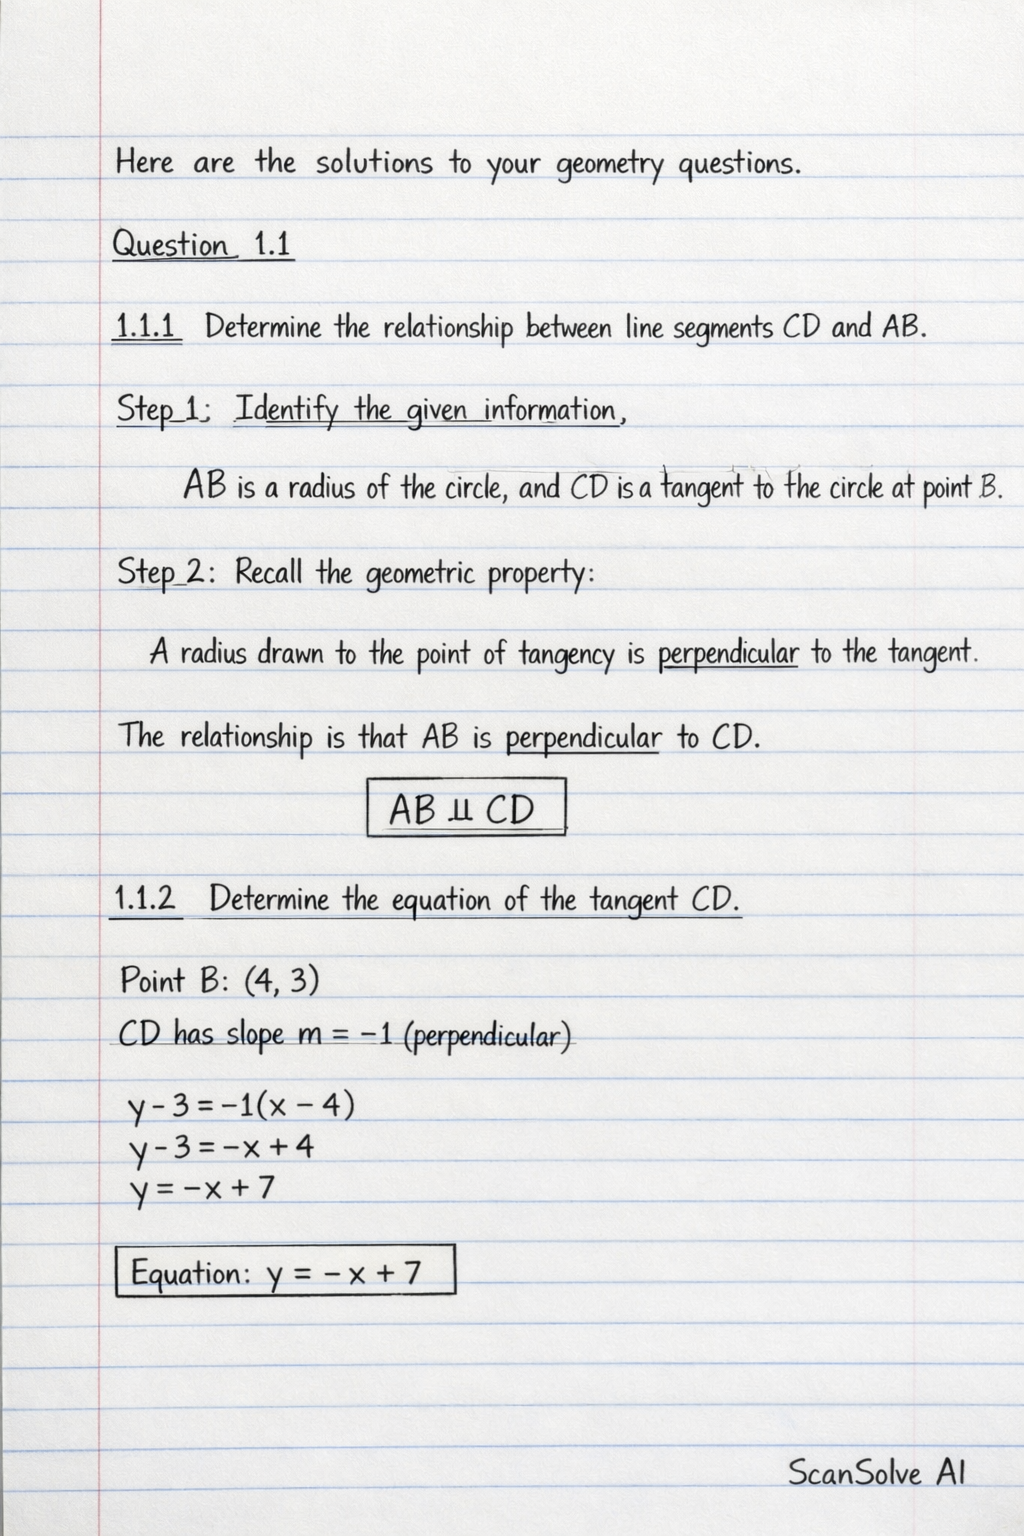 Here are the solutions to your geometry questions.
Question 1.1
1.1.1 Determine the relationship between line segments CD and AB.
Step 1: Identify the given information,
AB is a radius of the circle, and CD is a tangent to the circle at point B.
Step 2: Recall the geometric property:
A radius drawn to the point of tangency is perpendicular to the tangent.
The relationship is that AB is perpendicular to CD.
AB ⊥⊥ CD
1.1.2 Determine the equation of the tangent CD.
Point B: (4, 3)
CD has slope m = -1 (perpendicular)
y - 3 = -1(x - 4)
y - 3 = -x + 4
y = -x + 7
Equation: y = -x + 7
ScanSolve AI